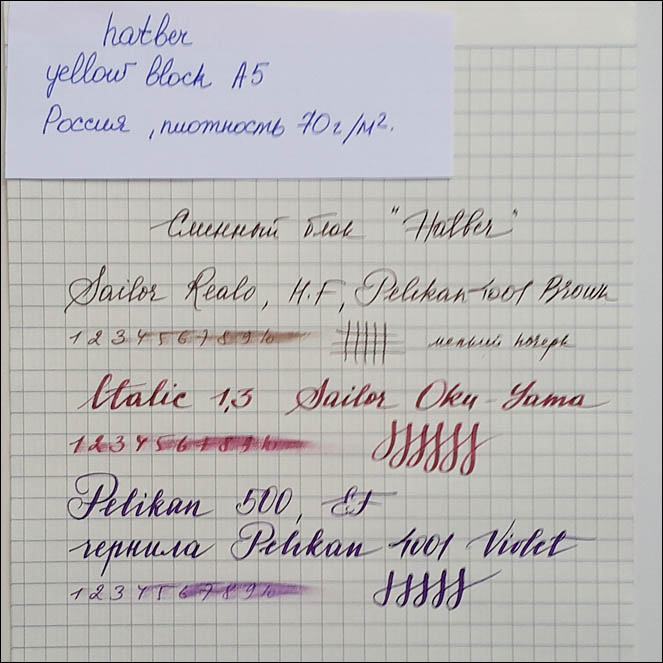 hatber
yellow block A5
Россия, плотность 70г/м².
Сменный блок "Hatber"
Sailor Realo, H.F, Pelikan 4001 Brown
1 2 3 4 5 6 7 8 9 10 мелкий почерк
Italic 1,3 Sailor Oku-Yama
1 2 3 4 5 6 7 8 9 10
Pelikan 500, EF
чернила Pelikan 4001 Violet
1 2 3 4 5 6 7 8 9 10